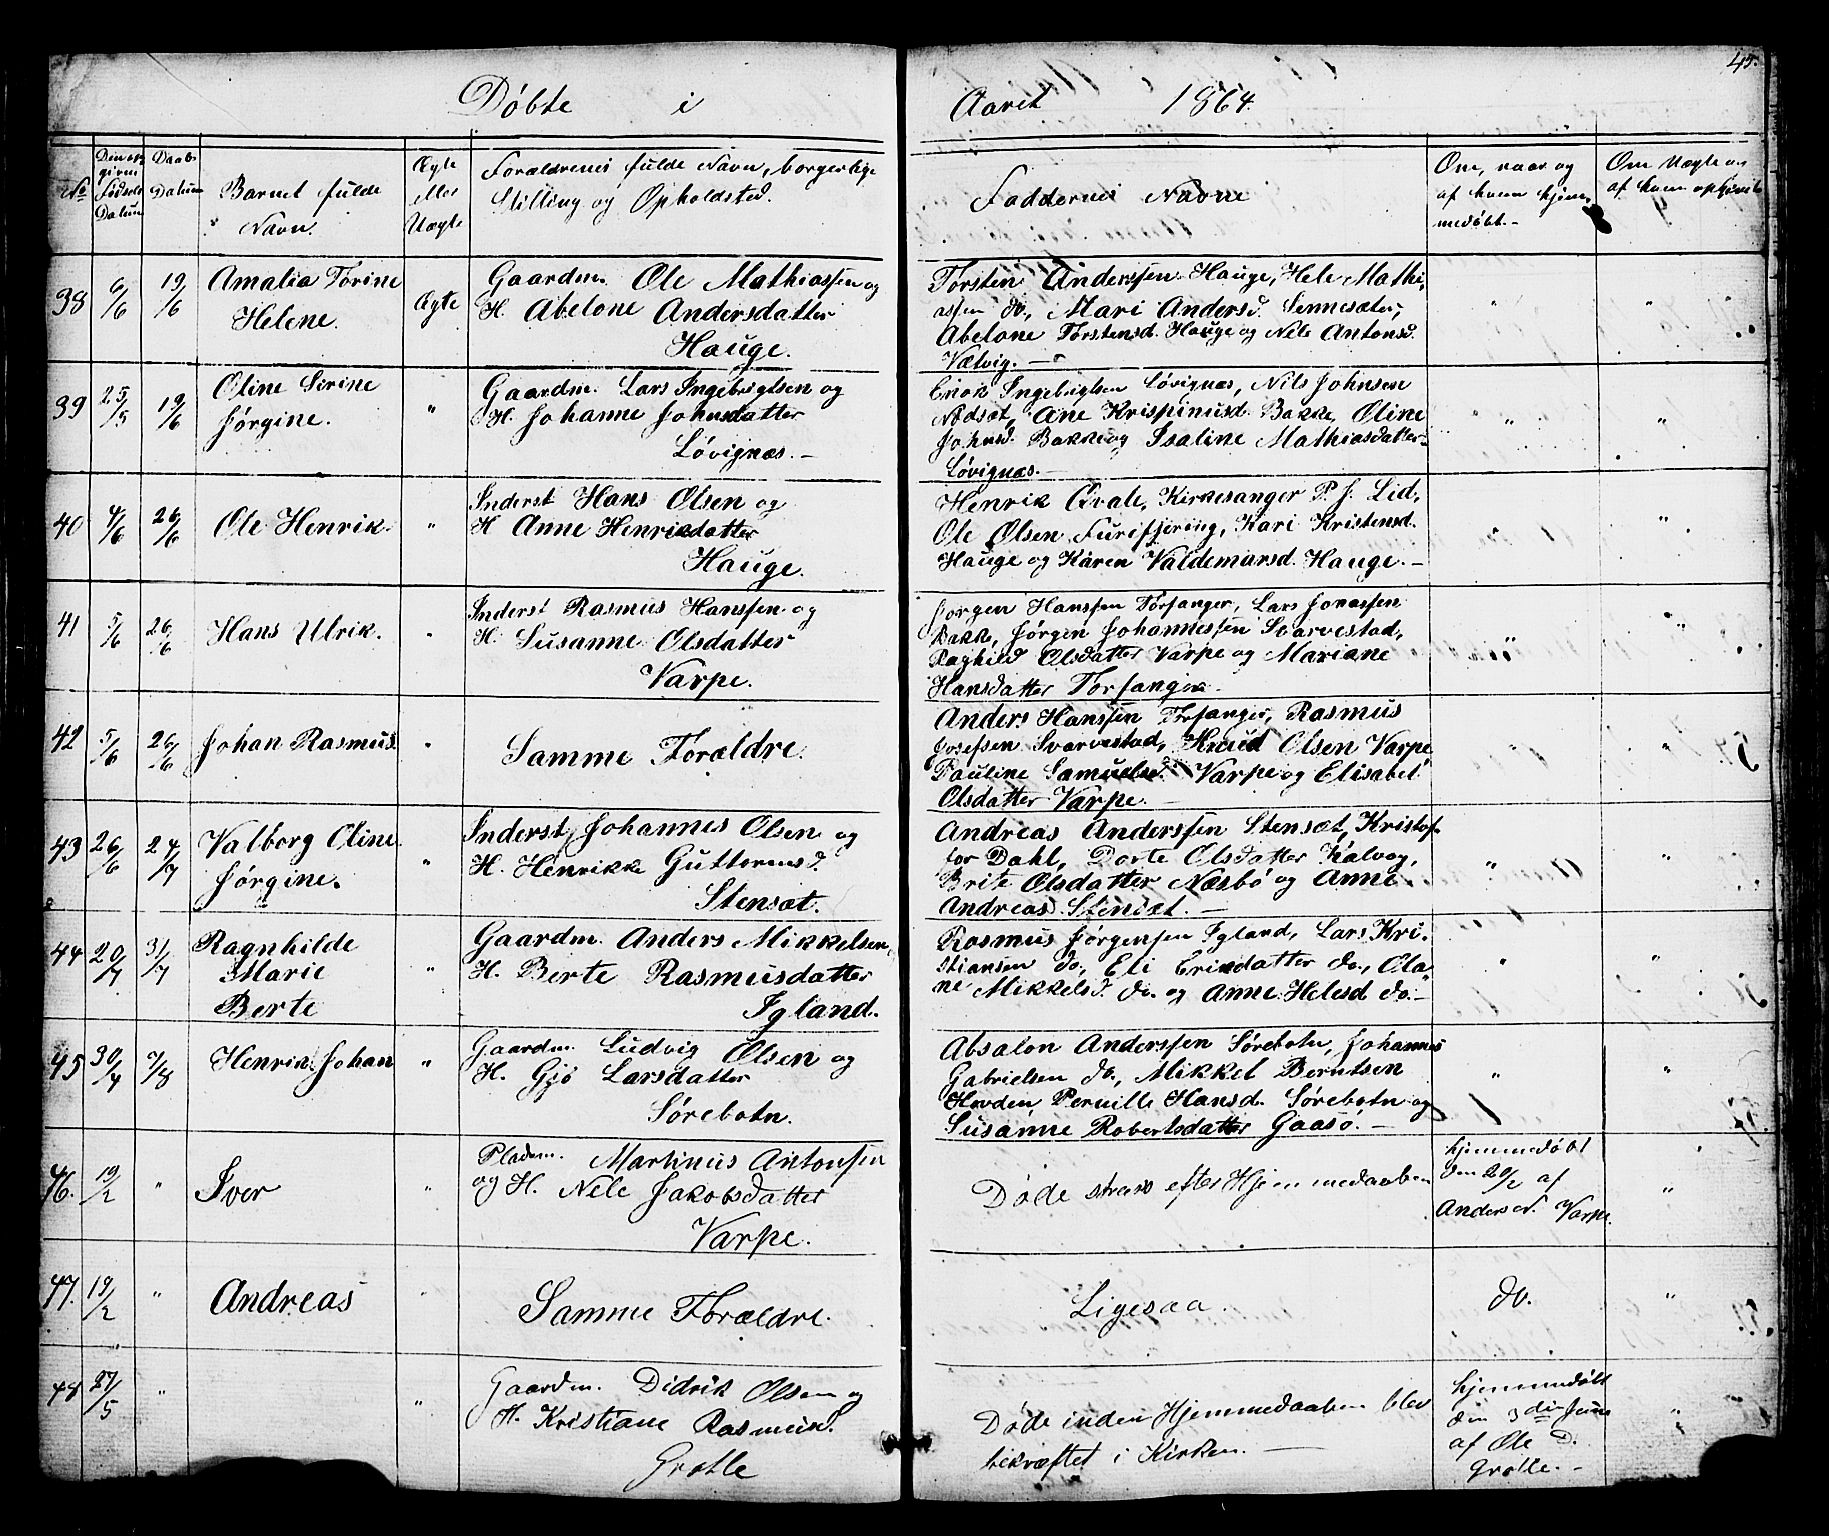 45.
Døbte i Aaret 1864.
No
Den op-
givne
Fødsels
Datum
Daabs
Datum
Barnet fulde
Navn.
Ægte
eller
Uægte
Forældrenes fulde Navn, borgerlige
Stilling og Opholdsted.
Faddernes Navne
Om, naar og
af hvem hjem-
medøbt.-
Om Uægte og
af hvem
38 6/6 19/6 Amalia Torine
Helene.
Ægte
Gaardm. Ole Mathiassen og
H. Abelone Andersdatter
Hauge.
Torsten Anderssen Hauge, Hele Mathi-
assen do, Mari Andersd. Sennesæter,
Abelone Torstensd. Hauge og Nele Antonsd.
Vætvig. -
39 25/5 19/6 Oline Serine
Jørgine.
"
Gaardm. Lars Ingebrigtsen og
H. Johanne Johnsdatter
Løvignæs. -
Erick Ingebrigtsen Løvignæs, Nils Johnsen
Nødsæt, Ane Krispinusd. Bakke, Oline
Johnsd. Bakke og Isaline Mathiasdatter
Løvignæs. -
40 4/6 26/6 Ole Henrik.
"
Inderst Hans Olsen og
H Anne Henrikdatter
Hauge.
Henrik Qvale, Kirkesanger P. J. Lid,
Ole Olsen Furifjøring, Kari Kristensd.
Hauge og Karen Valdemarsd. Hauge. -
41 5/6 26/6 Hans Ulrik.
"
Inderst Rasmus Hanssen og
H. Susanne Olsdatter
Varpe.
Jørgen Hanssen Torfanger, Lars Jonassen
Bakk, Jørgen Johannessen Svarvestad,
Raghild Olsdatter Varpe og Mariane
Hansdatter Torfanger.
42 5/6 26/6 Johan Rasmus
"
Samme Forældre.
Anders Hanssen Torfanger, Rasmus
Josefsen Svarvestad, Knud Olsen Varpe
Pauline Samuelsd. Varpe og Elisabet
Olsdatter Varpe. -
43 26/6 24/7 Valborg Oline
Jørgine.
"
Inderst Johannes Olsen og
H. Henrikke Guttormsd.
Stensæt.
Andreas Anderssen Stensæt, Kristof-
for Dahl, Dorte Olsdatter Kalvog,
Brite Olsdatter Næsbø og Anne
Andreasd. Stensæt. -
44 20/7 31/7 Ragnhilde
Marie
Berte
"
Gaardm. Anders Mikkelsen,
H. Berte Rasmusdatter
Igland.
Rasmus Jørgensen Igland, Lars Kri-
stiansen do, Eli Eriksdatter do., Ola-
ne Mikkelsd. do. og Anne Helesd do. -
45 30/7 7/8 Henrik Johan
"
Gaardm. Ludvig Olsen og
H. Gjø Larsdatter
Sørebotn.
Absalon Anderssen Sørebotn, Johannes
Gabrielsen do., Mikkel Berntsen
Hovden Pernille Hansd. Sørebotn og
Susanne Robertsdatter Gaasø. -
46. 19/2 " Iver
"
Pladsm. Martinus Antonsen
og H. Nele Jakobsdatter
Varpe.
Døde strax efter Hjemmedaaben
hjemmedøbt
den 20/2 af
Anders N. Varpe.
47. 19/2 " Andreas
"
Samme Forældre.
Ligesaa.
do.
48 27/5 "
"
Gaardm. Didrik Olsen og
H. Kristiane Rasmusd.
Grotle
Døde inden Hjemmedaaben blev
bekræftet i Kirken. -
hjemmedøbt
den 3die Juni
af Ole D.
Grotle. -